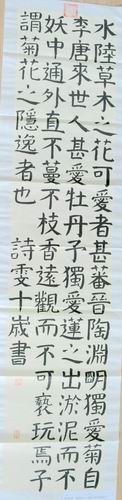 水陸草木之花可愛者甚蕃晉陶淵明獨愛菊自
李唐來世人甚愛牡丹予獨愛蓮之出淤泥而不
妖中通外直不蔓不枝香遠觀而不可褻玩焉予
謂菊花之隱逸者也 詩雯十歲書